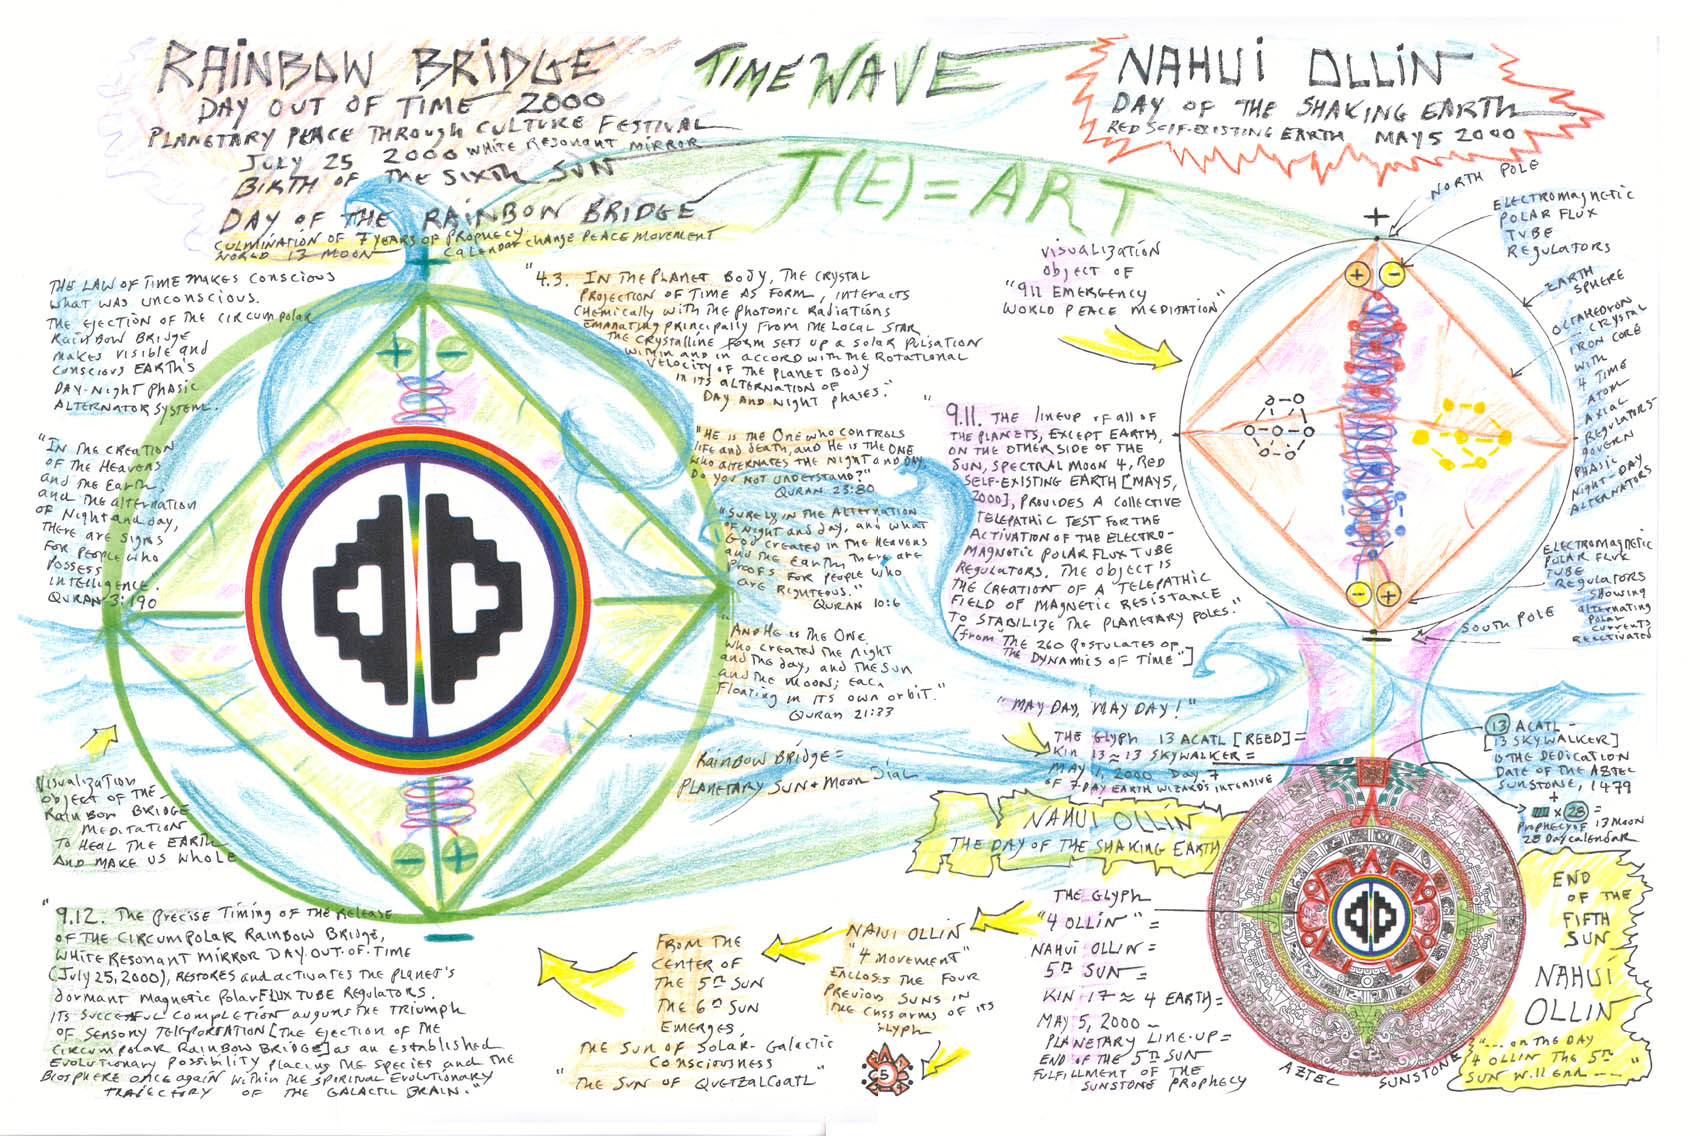 RAINBOW BRIDGE
DAY OUT OF TIME 2000
PLANETARY PEACE THROUGH CULTURE FESTIVAL
JULY 25 2000 WHITE RESONANT MIRROR
BIRTH OF THE SIXTH SUN
DAY OF THE RAINBOW BRIDGE
CULMINATION OF 7 YEARS OF PROPHECY
WORLD 13 MOON CALENDAR CHANGE PEACE MOVEMENT
TIME WAVE
T(E) = ART
NAHUI OLLIN
DAY OF THE SHAKING EARTH
RED SELF-EXISTING EARTH MAY 5 2000
THE LAW OF TIME MAKES CONSCIOUS
WHAT WAS UNCONSCIOUS.
THE EJECTION OF THE CIRCUMPOLAR
RAINBOW BRIDGE
MAKES VISIBLE AND
CONSCIOUS EARTH'S
DAY-NIGHT PHASIC
ALTERNATOR SYSTEM.
"IN THE CREATION
OF THE HEAVENS
AND THE EARTH
AND THE ALTERNATION
OF NIGHT AND DAY,
THERE ARE SIGNS
FOR PEOPLE WHO
POSSESS
INTELLIGENCE."
QURAN 3:190
VISUALIZATION
OBJECT OF THE
RAINBOW BRIDGE
MEDITATION
TO HEAL THE EARTH
AND MAKE US WHOLE
"9.12. THE PRECISE TIMING OF THE RELEASE
OF THE CIRCUMPOLAR RAINBOW BRIDGE,
WHITE RESONANT MIRROR DAY-OUT-OF-TIME
(JULY 25, 2000), RESTORES AND ACTIVATES THE PLANET'S
DORMANT MAGNETIC POLAR FLUX TUBE REGULATORS.
ITS SUCCESSFUL COMPLETION AUGURS THE TRIUMPH
OF SENSORY TELEPORTATION [THE EJECTION OF THE
CIRCUMPOLAR RAINBOW BRIDGE] AS AN ESTABLISHED
EVOLUTIONARY POSSIBILITY PLACING THE SPECIES AND THE
BIOSPHERE ONCE AGAIN WITHIN THE SPIRITUAL EVOLUTIONARY
TRAJECTORY OF THE GALACTIC BRAIN."
"4.3. IN THE PLANET BODY, THE CRYSTAL
PROJECTION OF TIME AS FORM, INTERACTS
CHEMICALLY WITH THE PHOTONIC RADIATIONS
EMANATING PRINCIPALLY FROM THE LOCAL STAR
THE CRYSTALLINE FORM SETS UP A SOLAR PULSATION
WITHIN AND IN ACCORD WITH THE ROTATIONAL
VELOCITY OF THE PLANET BODY
IN ITS ALTERNATION OF
DAY AND NIGHT PHASES."
"HE IS THE ONE WHO CONTROLS
LIFE AND DEATH, AND HE IS THE ONE
WHO ALTERNATES THE NIGHT AND DAY,
DO YOU NOT UNDERSTAND?"
QURAN 23:80
"SURELY, IN THE ALTERNATION
OF NIGHT AND DAY, AND WHAT
GOD CREATED IN THE HEAVENS
AND THE EARTH, THERE ARE
PROOFS FOR PEOPLE WHO
ARE RIGHTEOUS."
QURAN 10:6
"AND HE IS THE ONE
WHO CREATED THE NIGHT
AND THE DAY, AND THE SUN
AND THE MOON; EACH
FLOATING IN ITS OWN ORBIT."
QURAN 21:33
RAINBOW BRIDGE =
PLANETARY SUN + MOON DIAL
VISUALIZATION
OBJECT OF
"911 EMERGENCY
WORLD PEACE MEDITATION"
"9.11. THE LINEUP OF ALL OF
THE PLANETS, EXCEPT EARTH,
ON THE OTHER SIDE OF THE
SUN, SPECTRAL MOON 4, RED
SELF-EXISTING EARTH [MAY 5,
2000], PROVIDES A COLLECTIVE
TELEPATHIC TEST FOR THE
ACTIVATION OF THE ELECTRO-
MAGNETIC POLAR FLUX TUBE
REGULATORS. THE OBJECT IS
THE CREATION OF A TELEPATHIC
FIELD OF MAGNETIC RESISTANCE
TO STABILIZE THE PLANETARY POLES."
[FROM "THE 260 POSTULATES OF
THE DYNAMICS OF TIME"]
NORTH POLE
ELECTROMAGNETIC
POLAR FLUX
TUBE
REGULATORS
EARTH
SPHERE
OCTAHEDRON
CRYSTAL
IRON CORE
WITH
4 TIME
ATOM
AXIAL
REGULATORS
GOVERN
PHASIC
NIGHT-DAY
ALTERNATORS
ELECTROMAGNETIC
POLAR FLUX
TUBE
REGULATORS
SHOWING
ALTERNATING
POLAR
CURRENTS
REACTIVATED
SOUTH POLE
"MAY DAY, MAY DAY!"
THE GLYPH 13 ACATL [REED] =
KIN 13 ≈ 13 SKYWALKER =
MAY 1, 2000 DAY 7
OF 7-DAY EARTH WIZARDS INTENSIVE
13 ACATL -
[13 SKYWALKER]
IS THE DEDICATION
DATE OF THE AZTEC
SUNSTONE, 1479
+
x 28 =
PROPHECY OF 13 MOON
28 DAY CALENDAR
NAHUI OLLIN
THE DAY OF THE SHAKING EARTH
THE GLYPH
"4 OLLIN" =
NAHUI OLLIN =
5TH SUN =
KIN 17 ≈ 4 EARTH =
MAY 5, 2000 -
PLANETARY LINE-UP =
END OF THE 5TH SUN
FULFILLMENT OF THE
SUNSTONE PROPHECY
NAHUI OLLIN
"4 MOVEMENT"
ENCLOSES THE FOUR
PREVIOUS SUNS IN
THE CROSSARMS OF ITS
GLYPH
5
FROM THE
CENTER OF
THE 5TH SUN
THE 6TH SUN
EMERGES,
THE SUN OF SOLAR-GALACTIC
CONSCIOUSNESS
"THE SUN OF QUETZALCOATL"
AZTEC SUNSTONE
END
OF THE
FIFTH
SUN
NAHUI
OLLIN
"... ON THE DAY
4 OLLIN THE 5TH
SUN WILL END ..."